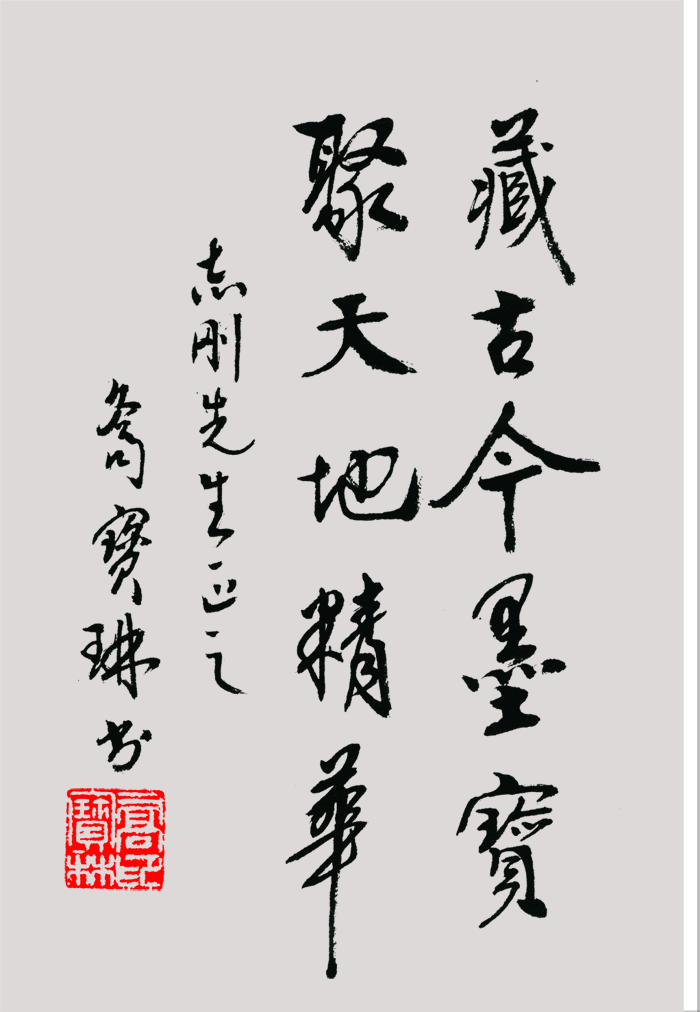 藏古今墨寶
聚天地精華
志刚先生正之
喬寶琳书